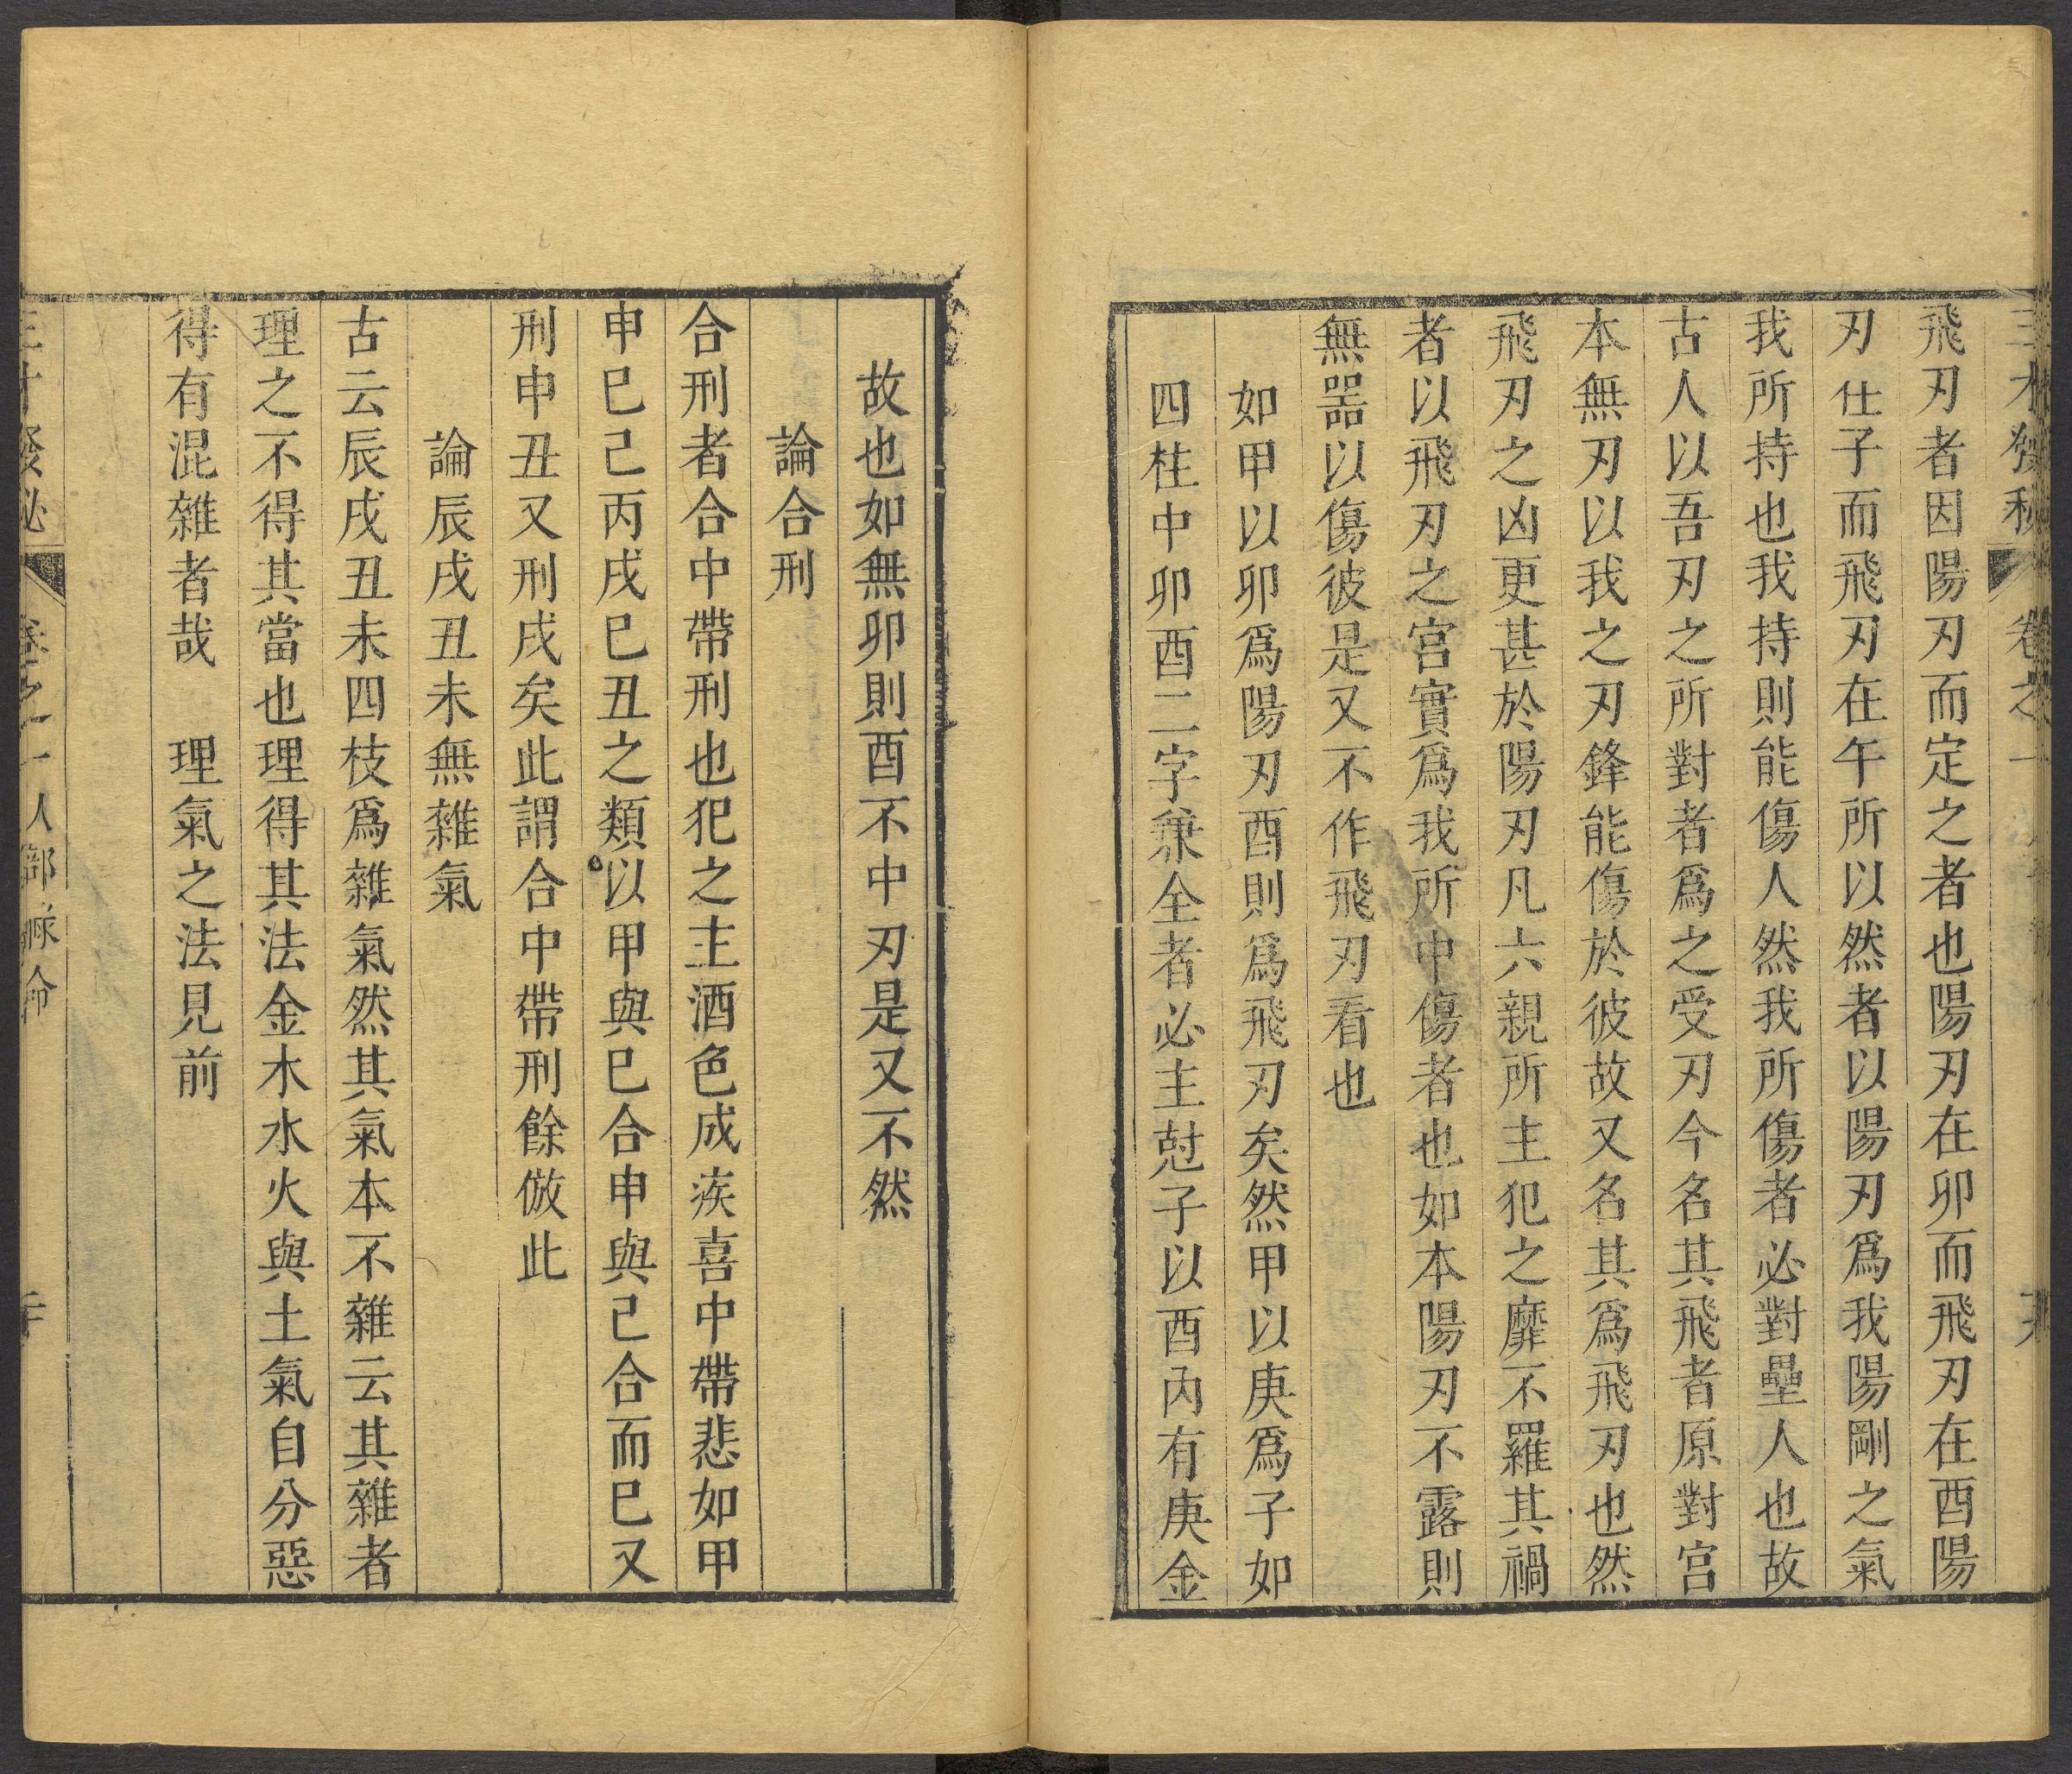 飛刃者因陽刃而定之者也陽刃在卯而飛刃在酉陽
刃仕子而飛刃在午所以然者以陽刃爲我陽剛之氣
我所持也我持則能傷人然我所傷者必對壘人也故
古人以吾刃之所對者爲之受刃今名其飛者原對宫
本無刃以我之刃鋒能傷於彼故又名其爲飛刃也然
飛刃之凶更甚於陽刃凡六親所主犯之靡不羅其禍
者以飛刃之宫實爲我所中傷者也如本陽刃不露則
無噐以傷彼是又不作飛刃看也
如甲以卯爲陽刃酉則爲飛刃矣然甲以庚爲子如
四柱中卯酉二字兼全者必主尅子以酉內有庚金
故也如無卯則酉不中刃是又不然
論合刑
合刑者合中帶刑也犯之主酒色成疾喜中帶悲如甲
申巳己丙戌巳丑之類以甲與巳合申與己合而巳又
刑申丑又刑戌矣此謂合中帶刑餘倣此
論辰戌丑未無雜氣
古云辰戌丑未四枝爲雜氣然其氣本不雜云其雜者
理之不得其當也理得其法金木水火與土氣自分惡
得有混雜者哉　理氣之法見前